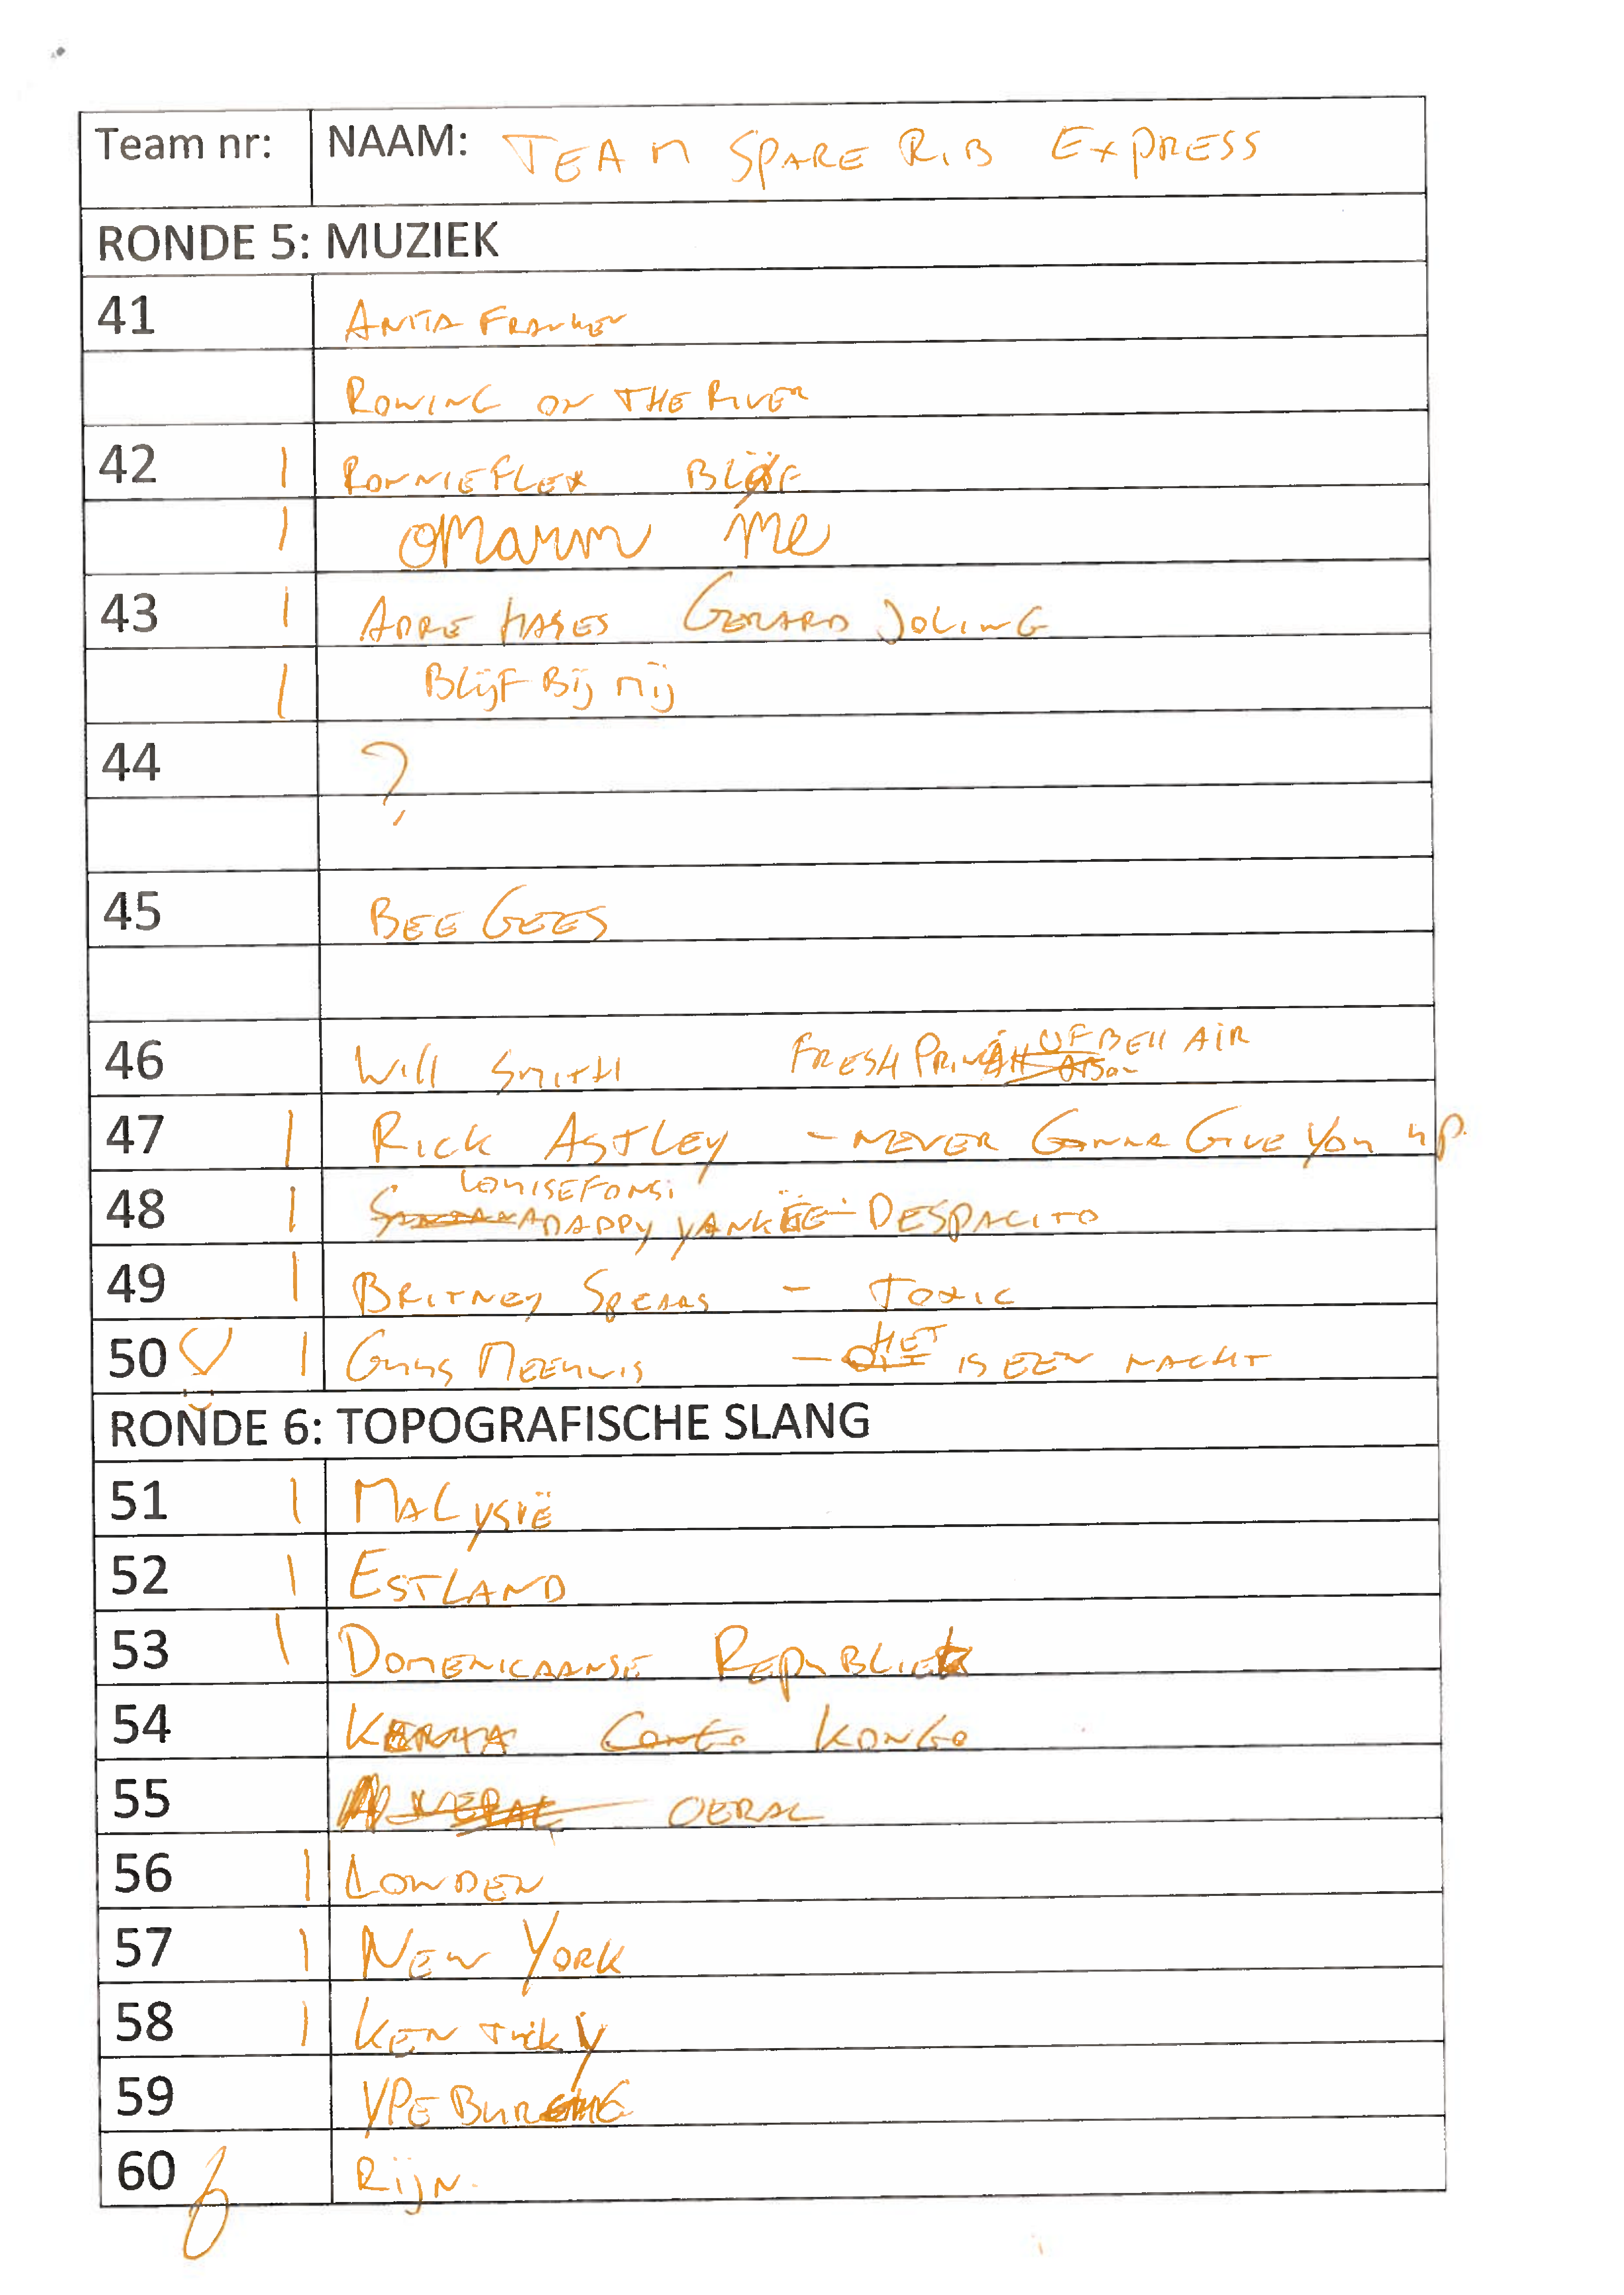 Team nr: NAAM: TEAM SPARE RIB EXPRESS
RONDE 5: MUZIEK
41 ANITA FRANKEN
ROWING ON THE RIVER
42 1 RONNIEFLEX BLØF
1 OMarm me
43 1 ADRE HASES GERARD JOLING
1 BLIJF BIJ MIJ
44 ?
45 BEE GEES
46 Will SMITH FRESH PRINCE OF BEll AIR
47 1 RICK ASTLEY - NEVER GONNA GIVE YOU UP.
48 1 LOUISEFONSI DADDY YANKEE - DESPACITO
49 1 BRITNEY SPEARS - TOXIC
50 1 GUUS MEEUWIS - HET IS EEN NACHT
RONDE 6: TOPOGRAFISCHE SLANG
51 1 MALYSIË
52 1 ESTLAND
53 1 DOMENICAANSE REPUBLIEK
54 KONGO
55 OERAL
56 1 LONDEN
57 1 NEW YORK
58 1 KENTUCKY
59 YPEBURG
60 6 RIJN.